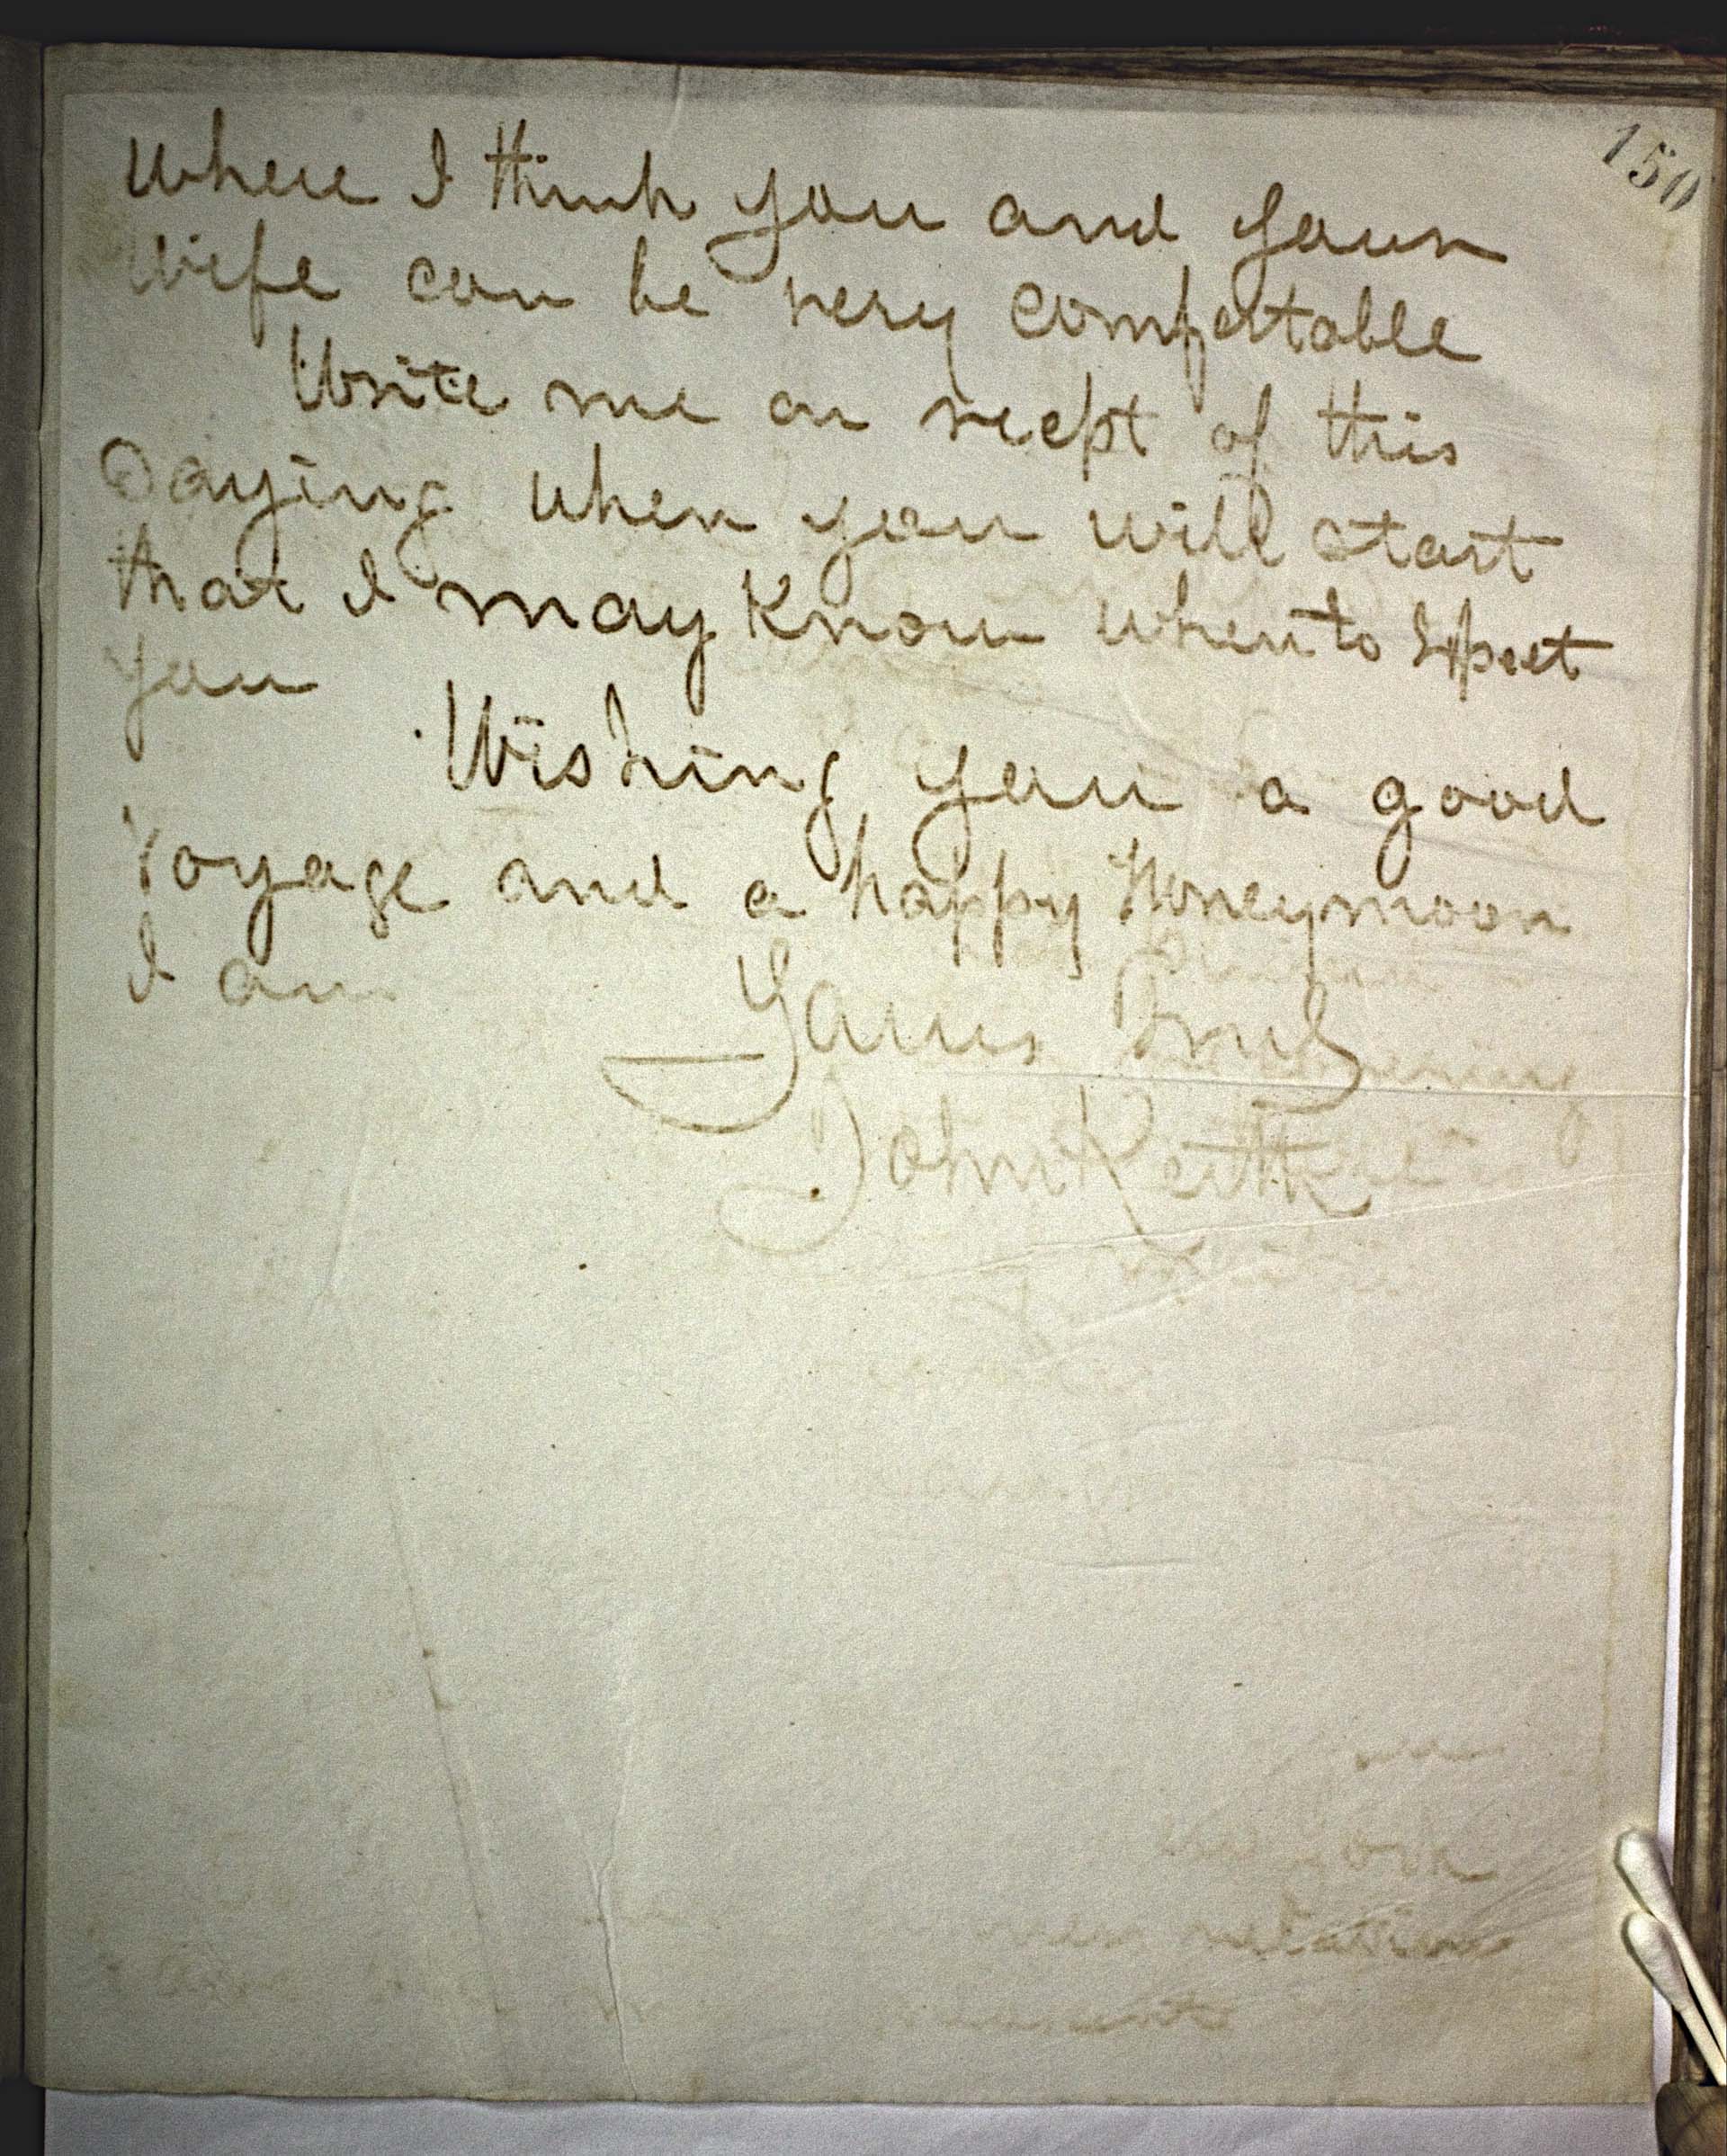 150
where I think you and your
wife can be very comfortable
Write me on recpt of this
Saying when you will start
that I may Know when to Expect
you
Wishing you a good
Voyage and a happy Honeymoon
I am
Yours Truly
John Keith